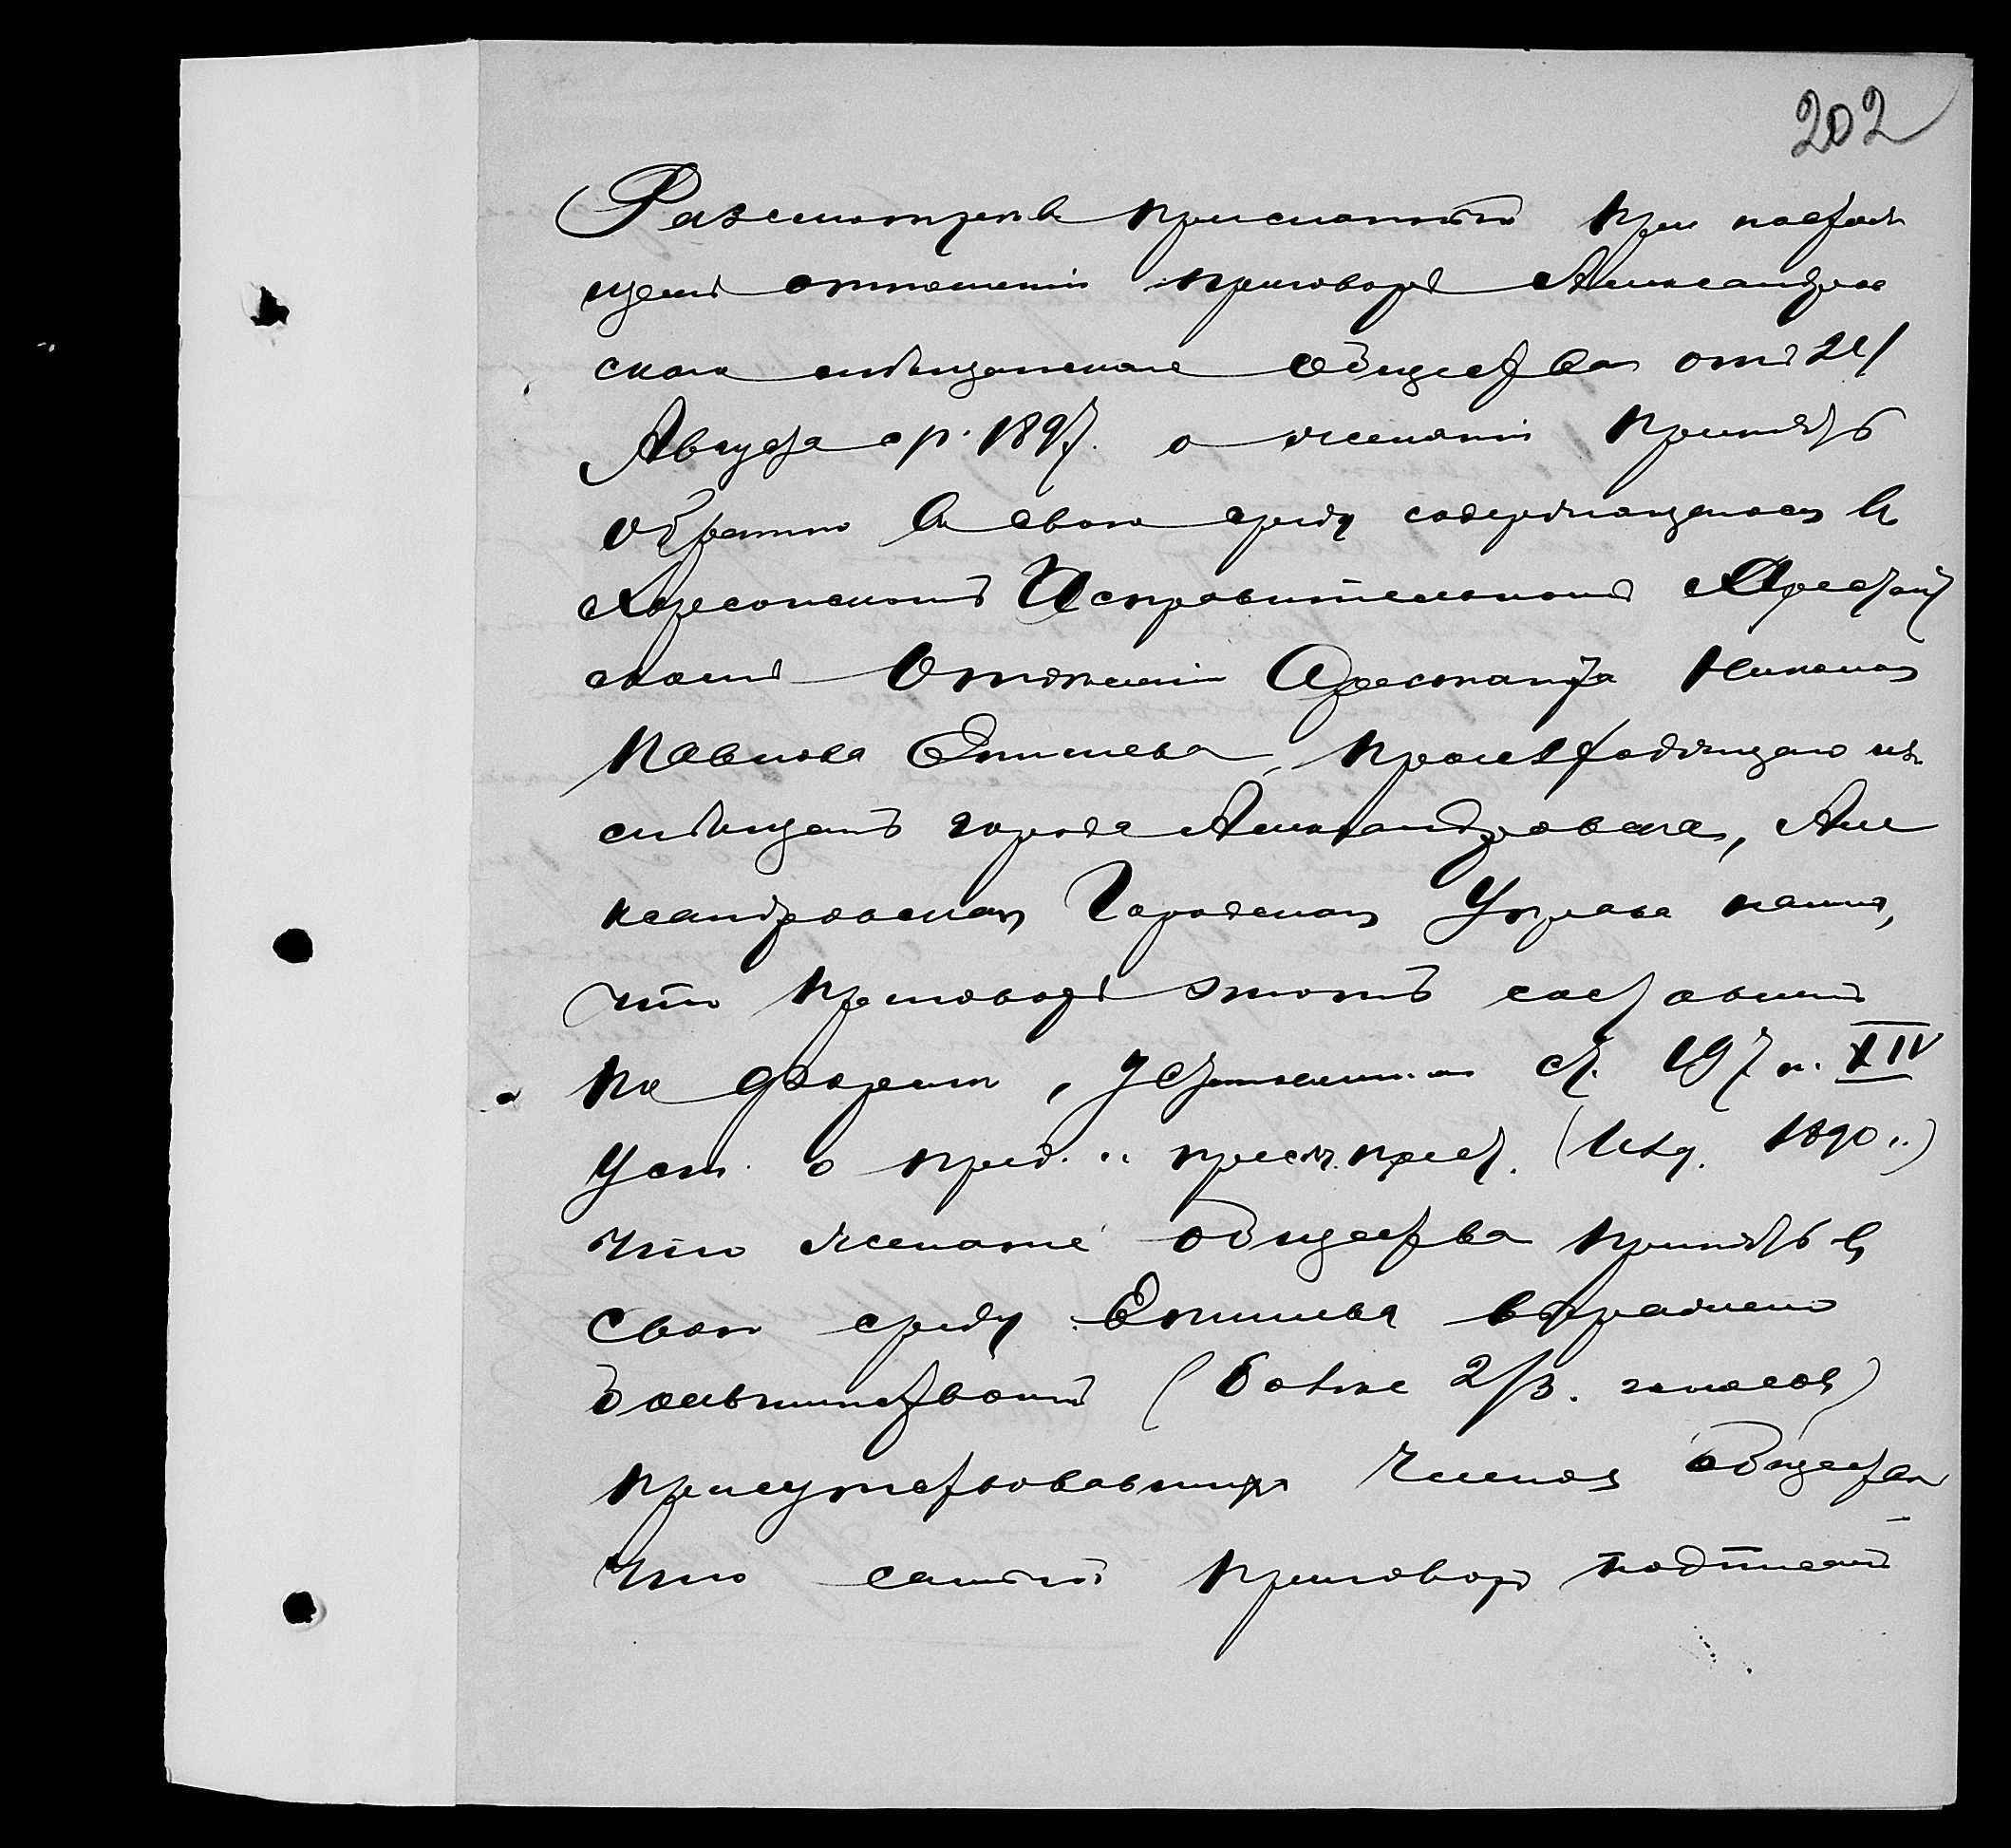 202
Разсмотревъ присланный при настоя
щемъ отношеніи приговоръ Александров
скаго мѣщанскаго общества отъ 24
Августа с/г. 1897. о желаніи принять
обратно въ свою среду содержащагося въ
Херсонскомъ Исправительномъ Арестант
скомъ Отдѣленіи Арестанта Николая
Павлова Епишева, происходящаго изъ
мѣщанъ города Александровска, Але
ксандровская Городская Управа нашла,
что приговоръ этотъ составленъ
по форме, установленной ст. 197 т. XIV
Уст. о пред. и пресѣч. прест. (Изд. 1890 г.)
что желаніе общества принять въ
свою среду Епишева выражено
большинствомъ (более 2/3. голосовъ)
присутствовавшихъ членовъ общества
что самый приговоръ подписанъ